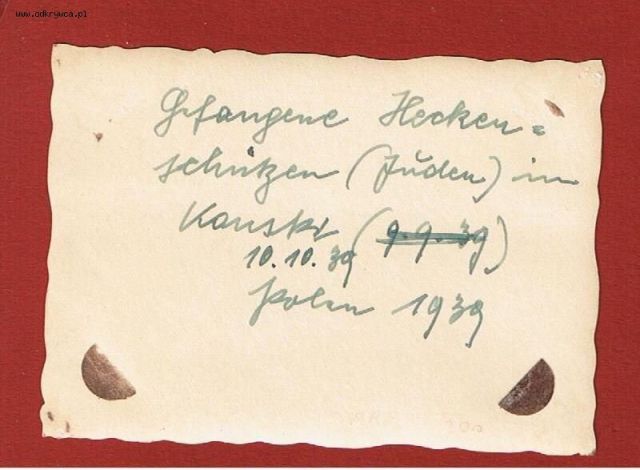 www.odkrywca.pl
Gefangene Hecken=
schützen (Juden) in
Konski (9.9.39)
10.10.39
Polen 1939